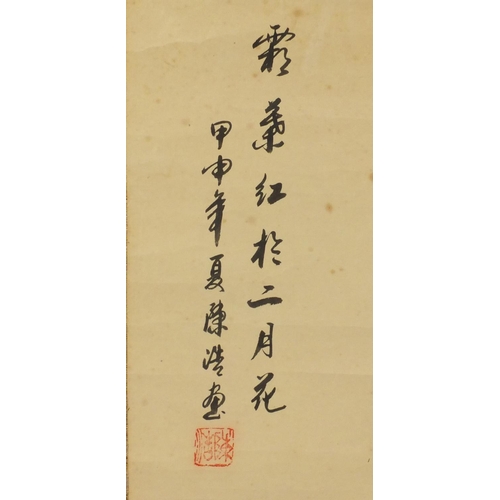 霜葉红於二月花
甲申年夏陳浩畫